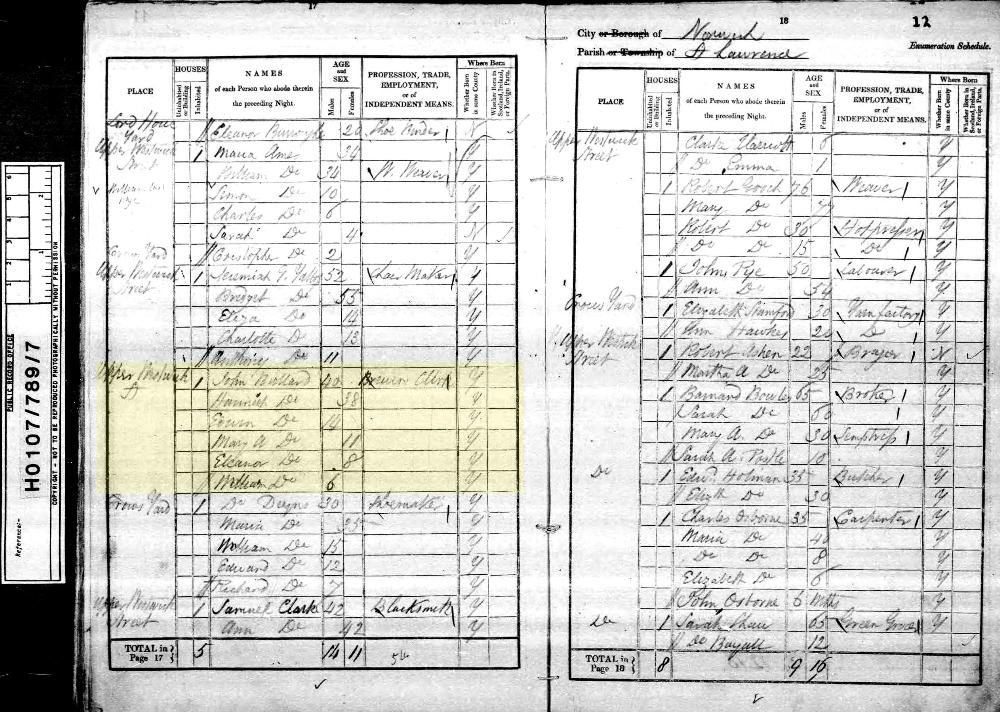 17
PLACE
HOUSES
Uninhabited or Building
Inhabited
NAMES
of each Person who abode therein
the preceding Night.
AGE
and
SEX
Males
Females
PROFESSION, TRADE,
EMPLOYMENT,
or of
INDEPENDENT MEANS.
Where Born
Whether Born in same County
Whether Born in Scotland, Ireland, or Foreign Parts.
Yard Eleanor 20 Shoe Binder N
Upper Westwick Street 1 Maria 34 Y
William Do 34 W. Weaver Y
Simon Do 10 Y
Charles Do 6 Y
Sarah Do 4 N
Crows Yard Cristopher Do 2 Y
Upper Westwick Street 1 Jeremiah 52 Maker Y
Bridget Do 55 Y
Eliza Do 14 Y
Charlotte Do 13 Y
Anthony Do 11 Y
Upper Westwick St 1 John Bullard 40 Brewers Clerk Y
Hannah Do 38 Y
Edwin Do 14 Y
Mary A Do 11 Y
Eleanor Do 8 Y
William Do 6 Y
Crows Yard 1 Do 30 Shoemaker Y
Maria Do 35 Y
William Do 15 Y
Edward Do 12 Y
Richard Do 7 Y
Upper Westwick Street 1 Samuel Clark 42 Blacksmith Y
Ann Do 42 Y
TOTAL in Page 17 5 14 11
18
12
City or Borough of Norwich
Parish or Township of St Lawrence
Enumeration Schedule.
PLACE
HOUSES
Uninhabited or Building
Inhabited
NAMES
of each Person who abode therein
the preceding Night.
AGE
and
SEX
Males
Females
PROFESSION, TRADE,
EMPLOYMENT,
or of
INDEPENDENT MEANS.
Where Born
Whether Born in same County
Whether Born in Scotland, Ireland, or Foreign Parts.
Upper Westwick Street Clark Harriott 6 Y
Do Emma 1 Y
1 Robert Gooch 76 Weaver Y
Mary Do 77 Y
Robert Do 30 Hotpresser Y
Do Do 15 Do Y
1 John Pye 50 Labourer Y
Ann Do 54 Y
Crows Yard 1 Elizabeth Stamford 30 Y
Ann Hawkes 20 Do Y
Upper Street 1 Robert 22 Brazier N
Martha A Do 25 Y
1 Barnard Bowles 65 Broker Y
Sarah Do 60 Y
Mary A. Do 30 Y
Sarah A. 10 Y
Do 1 Edwd Holman 35 Butcher Y
Elizth Do 30 Y
1 Charles Osborne 35 Carpenter Y
Maria Do 40 Y
Do Do 8 Y
Elizabeth Do 6 Y
John Osborne 6 Mths Y
Do 1 Sarah 65 Green Grocer Y
Do 12
TOTAL in Page 18 8 9 16
PUBLIC RECORD OFFICE
HO107/789/7
Reference:-
COPYRIGHT - NOT TO BE REPRODUCED PHOTOGRAPHICALLY WITHOUT PERMISSION